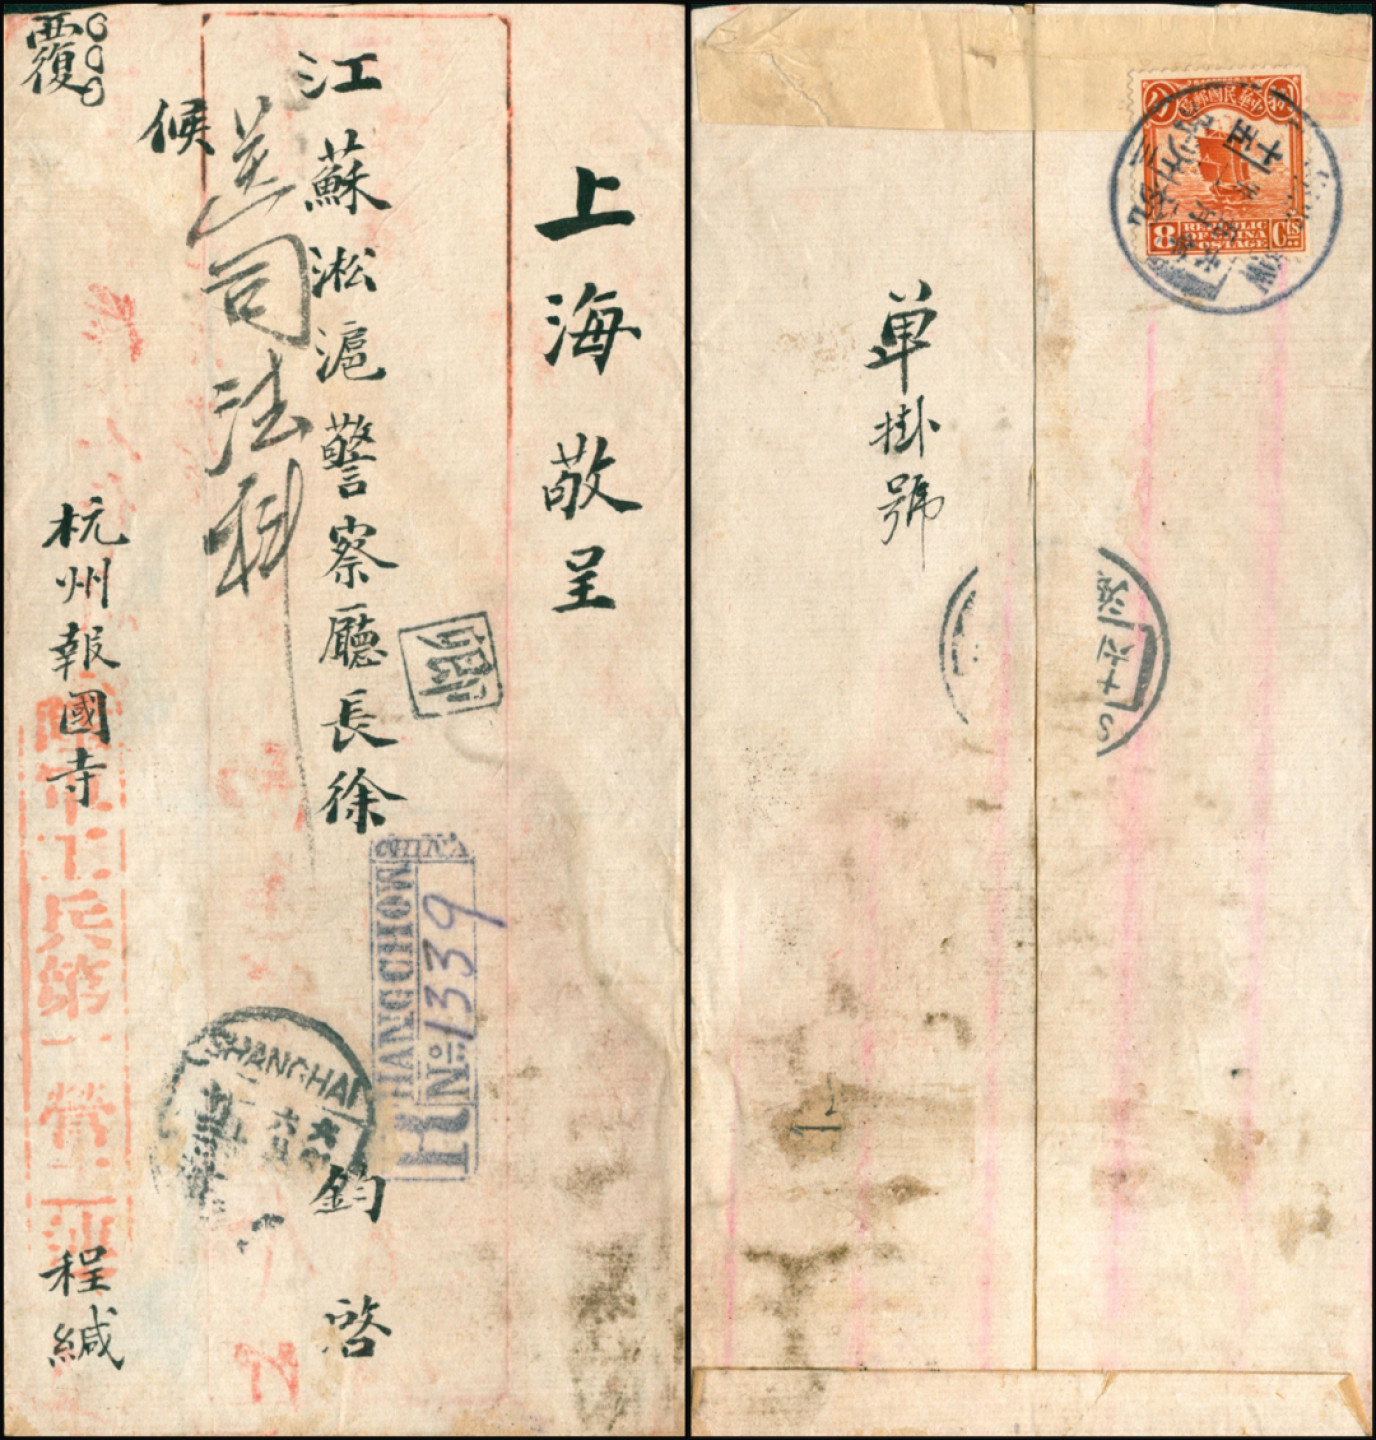 上海敬呈
江蘇淞滬警察廳長徐 鈞啓
送司法科
候
覆
杭州報國寺 程緘
工兵第一營
CHINA
HANGCHOW
R
No 1339
SHANGHAI
單掛號
中華民國郵政
8 Cts
REPUBLIC
OF CHINA
POSTAGE